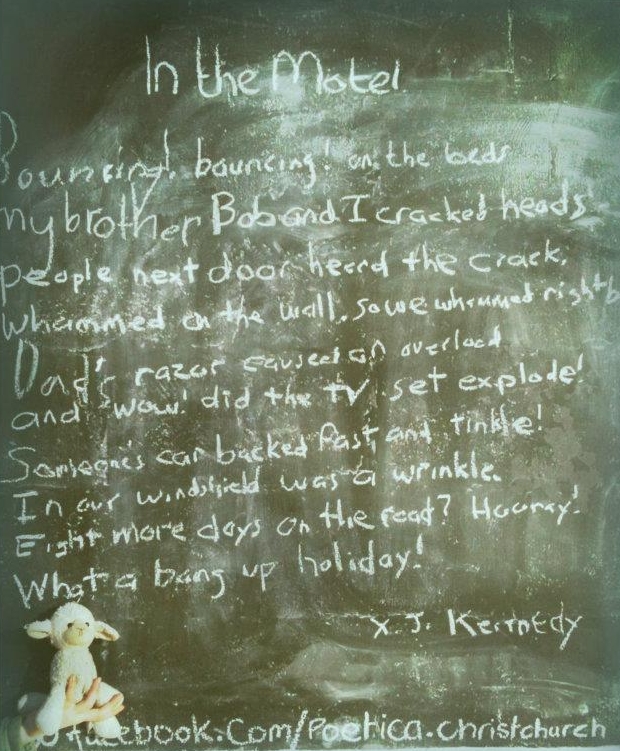 In the Motel
Bouncing! bouncing! on the beds
my brother Bob and I cracked heads
people next door heard the crack,
whammed on the wall, so we whammed right b
Dad's razor caused an overload
and wow! did the TV set explode!
Someone's car backed fast, and tinkle!
In our windshield was a wrinkle.
Eight more days on the road? Hooray!
What a bang up holiday!
X. J. Kennedy
facebook.com/Poetica.christchurch